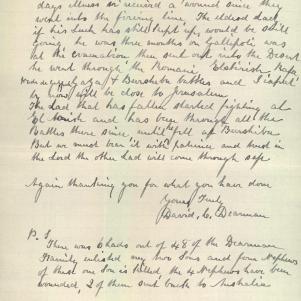 days illness or received a wound since they
went into the firing line. The eldest lad
if his luck has still kept up, would be still
going he was three months on Gallipoli was
at the evacuation they sent onto the Desert
he went through the Romani, Elarish Rafa
& Bersheba battles and I expect
by now will be close to Jerusalem
The lad that has fallen started fighting at
El Arish and has been through all the
Battles there since until fell at Bersheba
But we must bear it with patience and trust in
the Lord the other Lad will come through safe
Again thanking you for what you have done
Yours Truly
David. C. Dearman
P. S
There was 6 lads out of 48 of the Dearman
Family enlisted my two Sons and four Nephews
of these one Son is killed, the 4 Nephews have been
wounded, 2 of them sent back to Australia